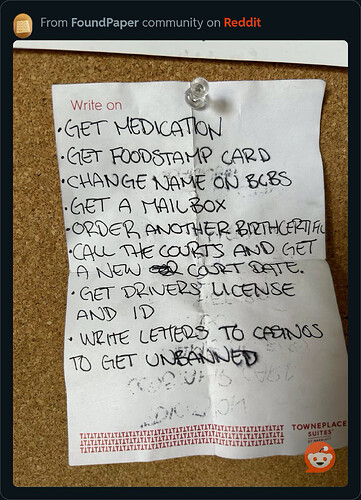 From FoundPaper community on Reddit
Write on
• GET MEDICATION
• GET FOODSTAMP CARD
• CHANGE NAME ON BCBS
• GET A MAILBOX
• ORDER ANOTHER BIRTHCERTIFIC
• CALL THE COURTS AND GET
A NEW COURT DATE.
• GET DRIVERS LICENSE
AND ID
• WRITE LETTERS TO CASINOS
TO GET UNBANNED
TOWNEPLACE
SUITES
BY MARRIOTT